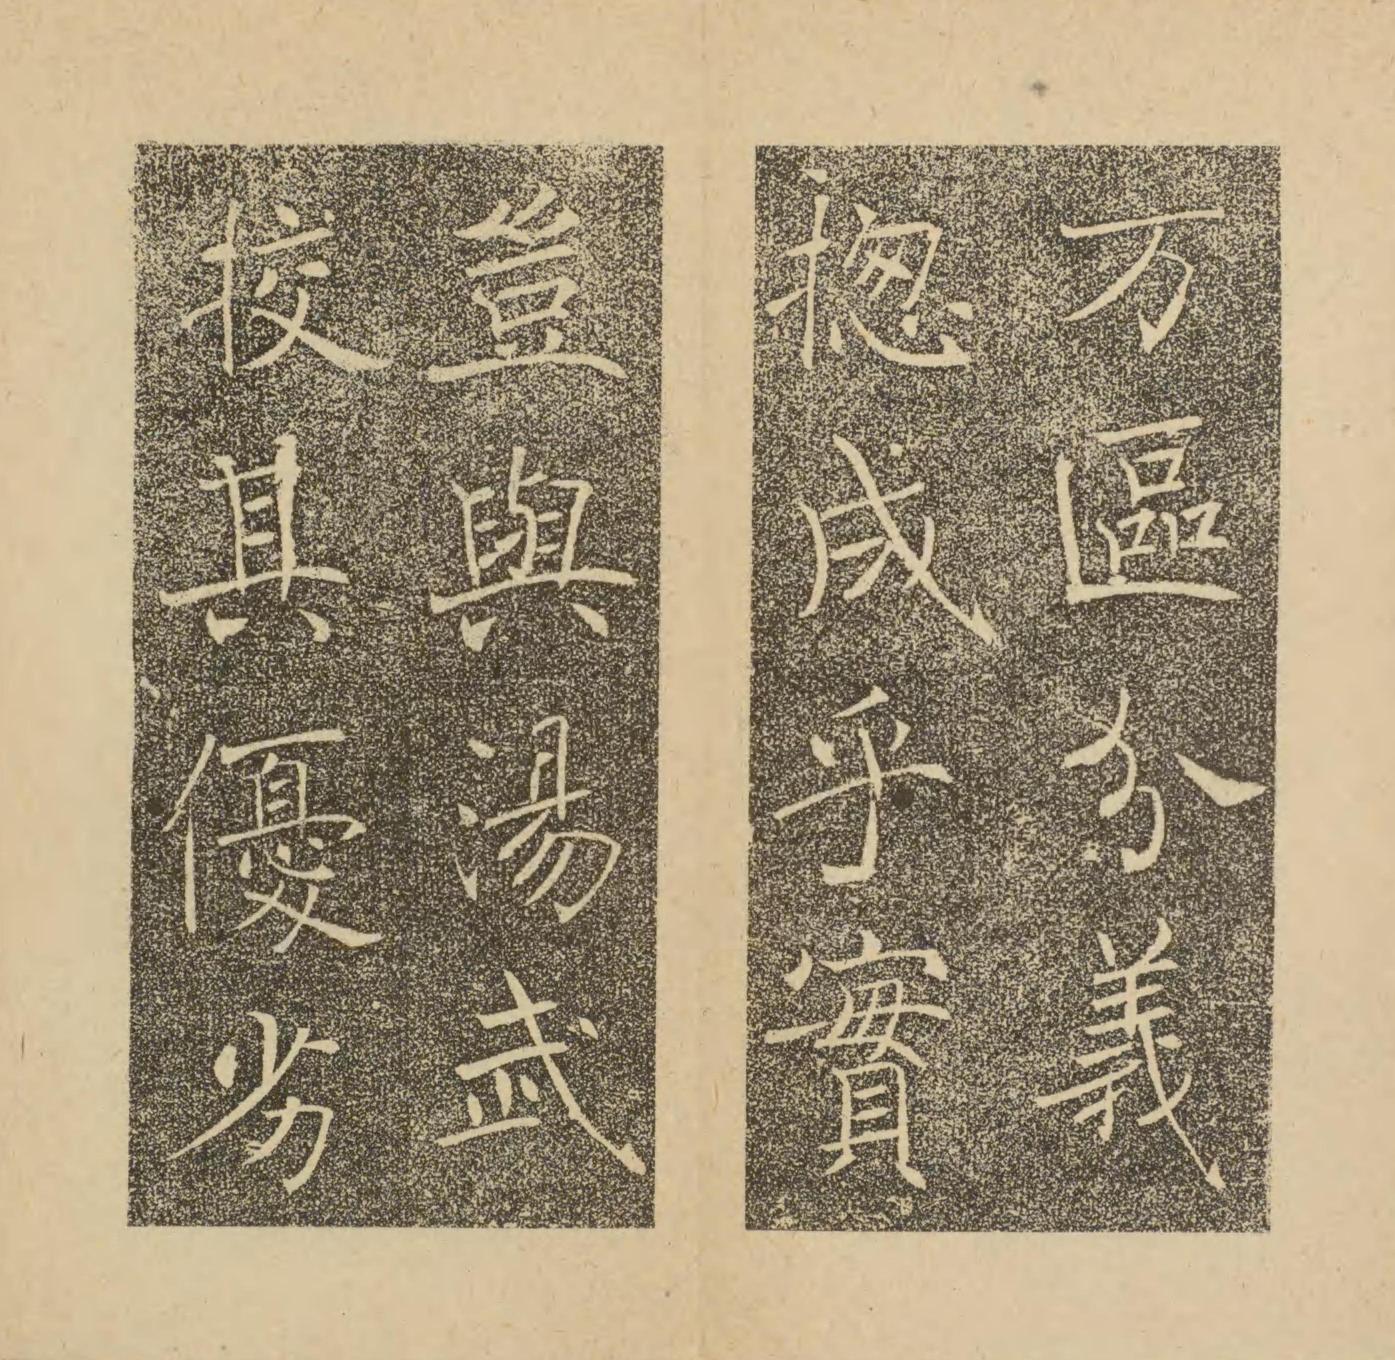 万區分義
揔成乎實
豈與湯武
挍其優劣